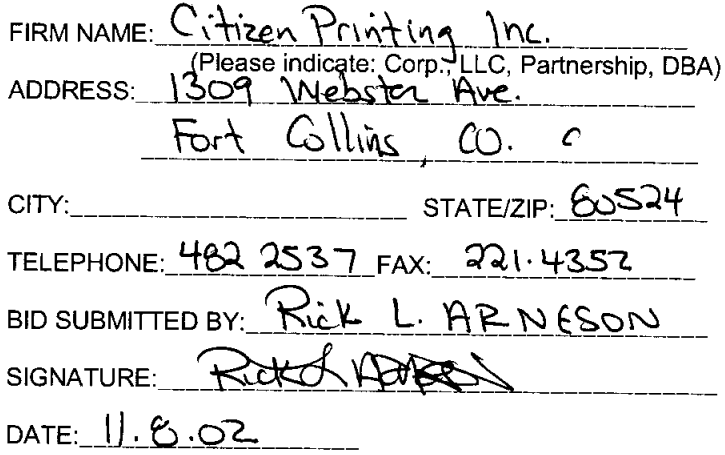 FIRM NAME: Citizen Printing Inc.
(Please indicate: Corp., LLC, Partnership, DBA)
ADDRESS: 1309 Webster Ave.
Fort Collins, CO. c
CITY: STATE/ZIP: 80524
TELEPHONE: 482 2537 FAX: 221.4352
BID SUBMITTED BY: Rick L. ARNESON
SIGNATURE: Rick L
DATE: 11.8.02